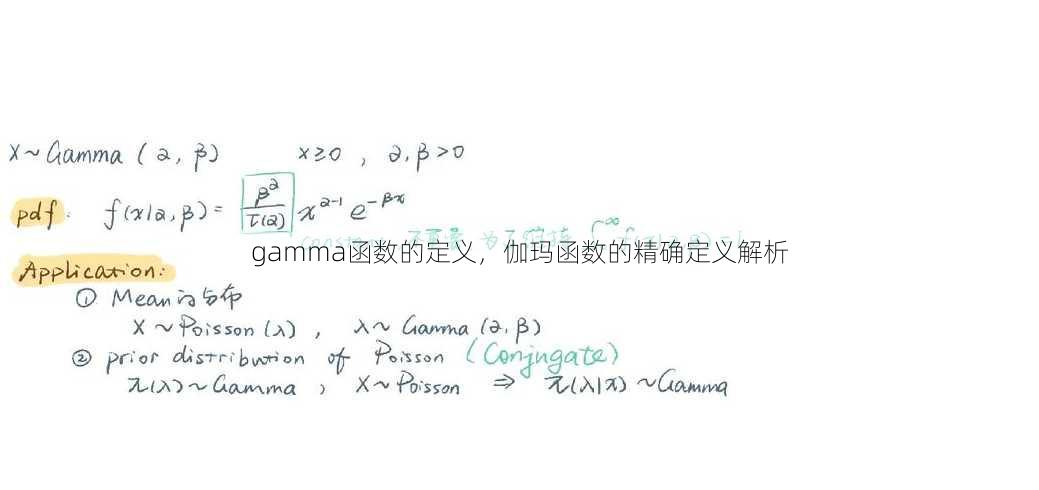 X ~ Gamma (α, β)    x ≥ 0 , α, β > 0
pdf: f(x|α, β) = β^α / Γ(α) x^(α-1) e^(-βx)
constant 不重要 为了维持 ∫^∞ f(x|α, β) = 1
gamma函数的定义，伽玛函数的精确定义解析
Application:
① Mean的分布
X ~ Poisson (λ) , λ ~ Gamma (α, β)
② prior distribution of Poisson (Conjugate)
π(λ) ~ Gamma , X ~ Poisson ⇒ π(λ|x) ~ Gamma